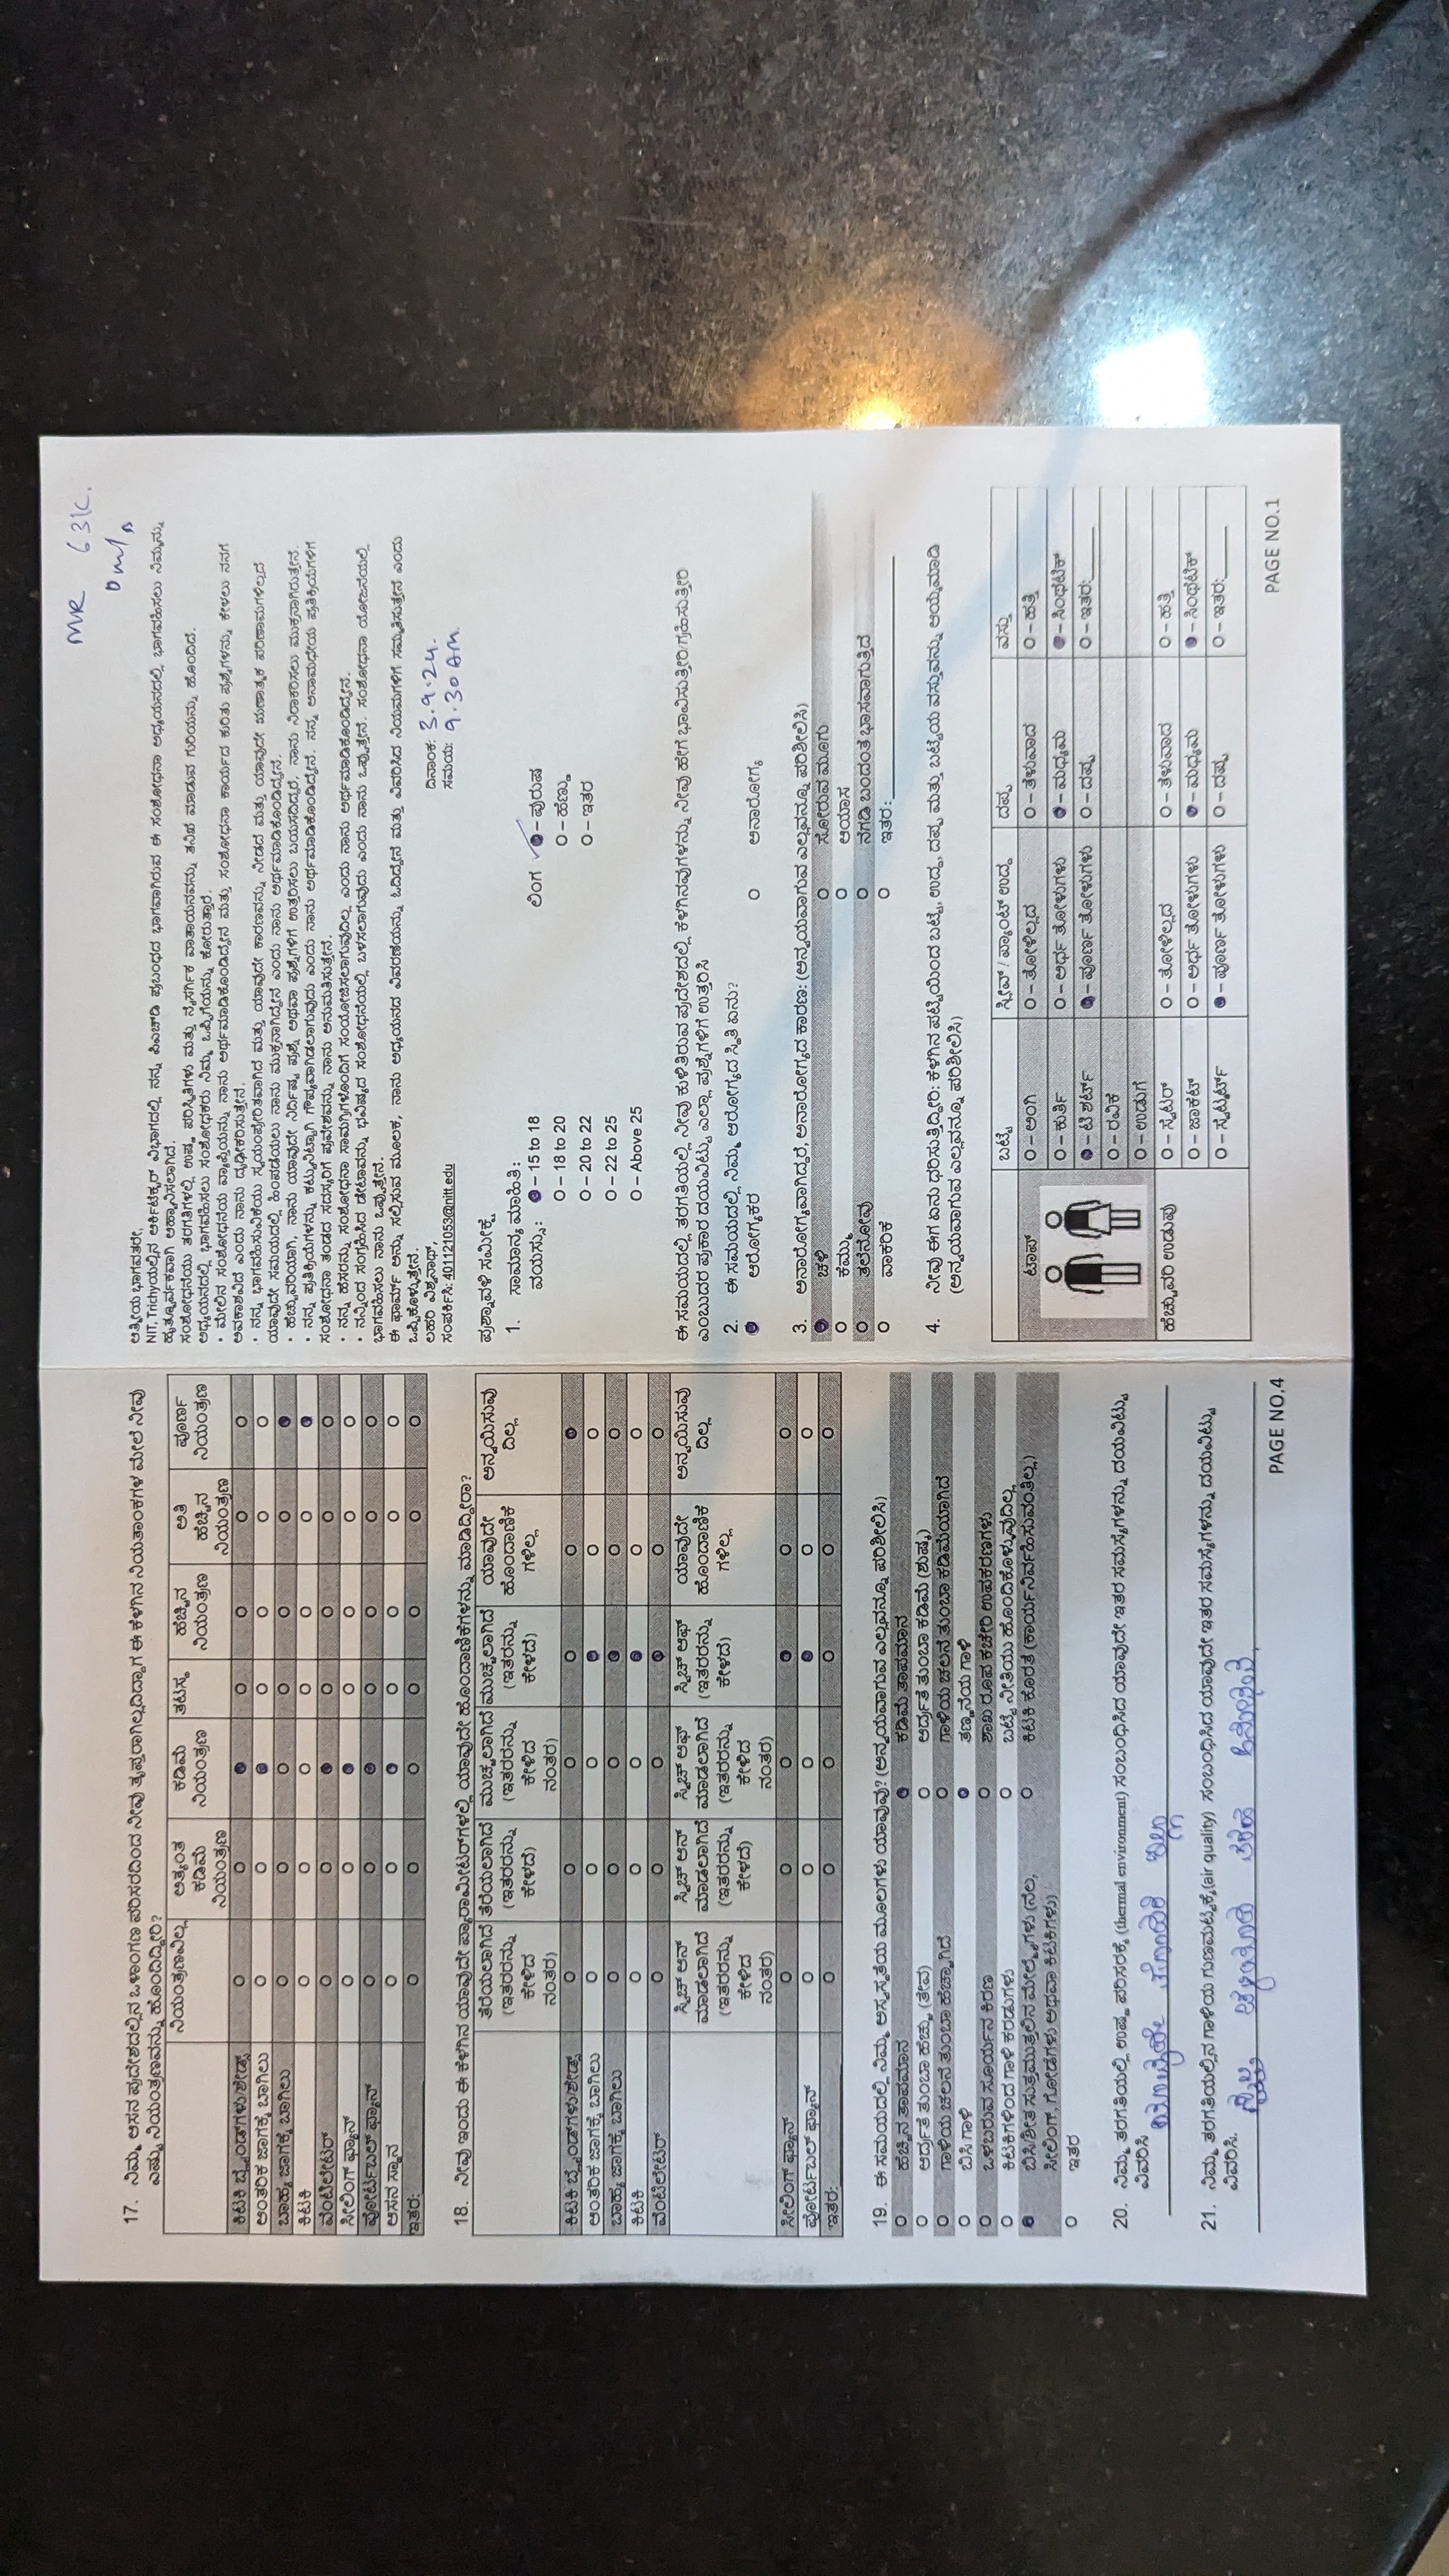 17. ನಿಮ್ಮ ಆಸನ ಪ್ರದೇಶದಲ್ಲಿನ ಒಳಾಂಗಣ ಪರಿಸರದಿಂದ ನೀವು ತೃಪ್ತರಾಗಿಲ್ಲದಿದ್ದಾಗ ಈ ಕೆಳಗಿನ ನಿಯತಾಂಕಗಳ ಮೇಲೆ ನೀವು
ಎಷ್ಟು ನಿಯಂತ್ರಣವನ್ನು ಹೊಂದಿದ್ದೀರಿ?
ನಿಯಂತ್ರಣವಿಲ್ಲ ಅತ್ಯಂತ ಕಡಿಮೆ ನಿಯಂತ್ರಣ ಕಡಿಮೆ ನಿಯಂತ್ರಣ ತಟಸ್ಥ ಹೆಚ್ಚಿನ ನಿಯಂತ್ರಣ ಅತಿ ಹೆಚ್ಚಿನ ನಿಯಂತ್ರಣ ಪೂರ್ಣ ನಿಯಂತ್ರಣ
ಕಿಟಕಿ ಬ್ಲೈಂಡ್‌ಗಳು/ಶೇಡ್ಸ್
ಆಂತರಿಕ ಜಾಗಕ್ಕೆ ಬಾಗಿಲು
ಬಾಹ್ಯ ಜಾಗಕ್ಕೆ ಬಾಗಿಲು
ಕಿಟಕಿ
ವೆಂಟಿಲೇಟರ್
ಸೀಲಿಂಗ್ ಫ್ಯಾನ್
ಪೋರ್ಟಬಲ್ ಫ್ಯಾನ್
ಆಸನ ಸ್ಥಾನ
ಇತರ:
18. ನೀವು ಇಂದು ಈ ಕೆಳಗಿನ ಯಾವುದೇ ಪ್ಯಾರಾಮೀಟರ್‌ಗಳಲ್ಲಿ ಯಾವುದೇ ಹೊಂದಾಣಿಕೆಗಳನ್ನು ಮಾಡಿದ್ದೀರಾ?
ತೆರೆಯಲಾಗಿದೆ (ಇತರರನ್ನು ಕೇಳಿದ ನಂತರ) ತೆರೆಯಲಾಗಿದೆ (ಇತರರನ್ನು ಕೇಳದೆ) ಮುಚ್ಚಲಾಗಿದೆ (ಇತರರನ್ನು ಕೇಳಿದ ನಂತರ) ಮುಚ್ಚಲಾಗಿದೆ (ಇತರರನ್ನು ಕೇಳದೆ) ಯಾವುದೇ ಹೊಂದಾಣಿಕೆ ಗಳಿಲ್ಲ ಅನ್ವಯಿಸುವು ದಿಲ್ಲ
ಕಿಟಕಿ ಬ್ಲೈಂಡ್‌ಗಳು/ಶೇಡ್ಸ್
ಆಂತರಿಕ ಜಾಗಕ್ಕೆ ಬಾಗಿಲು
ಬಾಹ್ಯ ಜಾಗಕ್ಕೆ ಬಾಗಿಲು
ಕಿಟಕಿ
ವೆಂಟಿಲೇಟರ್
ಸ್ವಿಚ್ ಆನ್ ಮಾಡಲಾಗಿದೆ (ಇತರರನ್ನು ಕೇಳಿದ ನಂತರ) ಸ್ವಿಚ್ ಆನ್ ಮಾಡಲಾಗಿದೆ (ಇತರರನ್ನು ಕೇಳದೆ) ಸ್ವಿಚ್ ಆಫ್ ಮಾಡಲಾಗಿದೆ (ಇತರರನ್ನು ಕೇಳಿದ ನಂತರ) ಸ್ವಿಚ್ ಆಫ್ (ಇತರರನ್ನು ಕೇಳದೆ) ಯಾವುದೇ ಹೊಂದಾಣಿಕೆ ಗಳಿಲ್ಲ ಅನ್ವಯಿಸುವು ದಿಲ್ಲ
ಸೀಲಿಂಗ್ ಫ್ಯಾನ್
ಪೋರ್ಟಬಲ್ ಫ್ಯಾನ್
ಇತರ:
19. ಈ ಸಮಯದಲ್ಲಿ ನಿಮ್ಮ ಅಸ್ವಸ್ಥತೆಯ ಮೂಲಗಳು ಯಾವುವು? (ಅನ್ವಯವಾಗುವ ಎಲ್ಲವನ್ನೂ ಪರಿಶೀಲಿಸಿ)
ಹೆಚ್ಚಿನ ತಾಪಮಾನ ಕಡಿಮೆ ತಾಪಮಾನ
ಆರ್ದ್ರತೆ ತುಂಬಾ ಹೆಚ್ಚು (ತೇವ) ಆರ್ದ್ರತೆ ತುಂಬಾ ಕಡಿಮೆ (ಶುಷ್ಕ)
ಗಾಳಿಯ ಚಲನೆ ತುಂಬಾ ಹೆಚ್ಚಾಗಿದೆ ಗಾಳಿಯ ಚಲನೆ ತುಂಬಾ ಕಡಿಮೆಯಾಗಿದೆ
ಬಿಸಿ ಗಾಳಿ ತಣ್ಣನೆಯ ಗಾಳಿ
ಒಳಬರುವ ಸೂರ್ಯನ ಕಿರಣ ಶಾಖ ರೂಪ ಕಚೇರಿ ಉಪಕರಣಗಳು
ಕಿಟಕಿಗಳಿಂದ ಗಾಳಿ ಕರಡುಗಳು ಬಟ್ಟೆ ನೀತಿಯು ಹೊಂದಿಕೊಳ್ಳುವುದಿಲ್ಲ
ಬಿಸಿ/ಶೀತ ಸುತ್ತಮುತ್ತಲಿನ ಮೇಲ್ಮೈಗಳು (ನೆಲ, ಕಿಟಕಿ ಕೊರತೆ (ಕಾರ್ಯನಿರ್ವಹಿಸುವಂತಿಲ್ಲ)
ಸೀಲಿಂಗ್, ಗೋಡೆಗಳು ಅಥವಾ ಕಿಟಕಿಗಳು)
ಇತರ
20. ನಿಮ್ಮ ತರಗತಿಯಲ್ಲಿ ಉಷ್ಣ ಪರಿಸರಕ್ಕೆ (thermal environment) ಸಂಬಂಧಿಸಿದ ಯಾವುದೇ ಇತರ ಸಮಸ್ಯೆಗಳನ್ನು ದಯವಿಟ್ಟು
ವಿವರಿಸಿ ಯಾವುದೇ ತೊಂದರೆ ಇಲ್ಲ
21. ನಿಮ್ಮ ತರಗತಿಯಲ್ಲಿನ ಗಾಳಿಯ ಗುಣಮಟ್ಟಕ್ಕೆ (air quality) ಸಂಬಂಧಿಸಿದ ಯಾವುದೇ ಇತರ ಸಮಸ್ಯೆಗಳನ್ನು ದಯವಿಟ್ಟು
ವಿವರಿಸಿ.
PAGE NO.4
MR 631C.
0 m/s
ಆತ್ಮೀಯ ಭಾಗವತರೇ,
NIT, Trichyಯಲ್ಲಿನ ಆರ್ಕಿಟೆಕ್ಚರ್ ವಿಭಾಗದಲ್ಲಿ ನನ್ನ ಪಿಎಚ್‌ಡಿ ಪ್ರಬಂಧದ ಭಾಗವಾಗಿರುವ ಈ ಸಂಶೋಧನಾ ಅಧ್ಯಯನದಲ್ಲಿ ಭಾಗವಹಿಸಲು ನಿಮ್ಮನ್ನು
ಹೃತ್ಪೂರ್ವಕವಾಗಿ ಆಹ್ವಾನಿಸಲಾಗಿದೆ.
ಸಂಶೋಧನೆಯು ತರಗತಿಗಳಲ್ಲಿ ಉಷ್ಣ ಪರಿಸ್ಥಿತಿಗಳು ಮತ್ತು ನೈಸರ್ಗಿಕ ವಾತಾಯನವನ್ನು ತನಿಖೆ ಮಾಡುವ ಗುರಿಯನ್ನು ಹೊಂದಿದೆ.
ಅಧ್ಯಯನದಲ್ಲಿ ಭಾಗವಹಿಸಲು ಸಂಶೋಧಕರು ನಿಮ್ಮ ಒಪ್ಪಿಗೆಯನ್ನು ಕೋರುತ್ತಾರೆ.
• ಮೇಲಿನ ಸಂಶೋಧನೆಯ ವ್ಯಾಪ್ತಿಯನ್ನು ನಾನು ಅರ್ಥಮಾಡಿಕೊಂಡಿದ್ದೇನೆ ಮತ್ತು ಸಂಶೋಧನಾ ಕಾರ್ಯದ ಕುರಿತು ಪ್ರಶ್ನೆಗಳನ್ನು ಕೇಳಲು ನನಗೆ
ಅವಕಾಶವಿದೆ ಎಂದು ನಾನು ದೃಢೀಕರಿಸುತ್ತೇನೆ.
• ನನ್ನ ಭಾಗವಹಿಸುವಿಕೆಯು ಸ್ವಯಂಪ್ರೇರಿತವಾಗಿದೆ ಮತ್ತು ಯಾವುದೇ ಕಾರಣವನ್ನು ನೀಡದೆ ಮತ್ತು ಯಾವುದೇ ಋಣಾತ್ಮಕ ಪರಿಣಾಮಗಳಿಲ್ಲದೆ
ಯಾವುದೇ ಸಮಯದಲ್ಲಿ ಹಿಂಪಡೆಯಲು ನಾನು ಮುಕ್ತನಾಗಿದ್ದೇನೆ ಎಂದು ನಾನು ಅರ್ಥಮಾಡಿಕೊಂಡಿದ್ದೇನೆ.
• ಹೆಚ್ಚುವರಿಯಾಗಿ, ನಾನು ಯಾವುದೇ ನಿರ್ದಿಷ್ಟ ಪ್ರಶ್ನೆ ಅಥವಾ ಪ್ರಶ್ನೆಗಳಿಗೆ ಉತ್ತರಿಸಲು ಬಯಸದಿದ್ದರೆ, ನಾನು ನಿರಾಕರಿಸಲು ಮುಕ್ತನಾಗಿರುತ್ತೇನೆ.
• ನನ್ನ ಪ್ರತಿಕ್ರಿಯೆಗಳನ್ನು ಕಟ್ಟುನಿಟ್ಟಾಗಿ ಗೌಪ್ಯವಾಗಿಡಲಾಗುವುದು ಎಂದು ನಾನು ಅರ್ಥಮಾಡಿಕೊಂಡಿದ್ದೇನೆ. ನನ್ನ ಅನಾಮಧೇಯ ಪ್ರತಿಕ್ರಿಯೆಗಳಿಗೆ
ಸಂಶೋಧನಾ ತಂಡದ ಸದಸ್ಯರಿಗೆ ಪ್ರವೇಶವನ್ನು ನಾನು ಅನುಮತಿಸುತ್ತೇನೆ.
• ನನ್ನ ಹೆಸರನ್ನು ಸಂಶೋಧನಾ ಸಾಮಗ್ರಿಗಳೊಂದಿಗೆ ಸಂಯೋಜಿಸಲಾಗುವುದಿಲ್ಲ ಎಂದು ನಾನು ಅರ್ಥಮಾಡಿಕೊಂಡಿದ್ದೇನೆ.
• ನನ್ನಿಂದ ಸಂಗ್ರಹಿಸಿದ ಡೇಟಾವನ್ನು ಭವಿಷ್ಯದ ಸಂಶೋಧನೆಯಲ್ಲಿ ಬಳಸಲಾಗುವುದು ಎಂದು ನಾನು ಒಪ್ಪುತ್ತೇನೆ. ಸಂಶೋಧನಾ ಯೋಜನೆಯಲ್ಲಿ
ಭಾಗವಹಿಸಲು ನಾನು ಒಪ್ಪುತ್ತೇನೆ.
ಈ ಫಾರ್ಮ್ ಅನ್ನು ಸಲ್ಲಿಸುವ ಮೂಲಕ, ನಾನು ಅಧ್ಯಯನದ ವಿವರಣೆಯನ್ನು ಓದಿದ್ದೇನೆ ಮತ್ತು ವಿವರಿಸಿದ ನಿಯಮಗಳಿಗೆ ಸಮ್ಮತಿಸುತ್ತೇನೆ ಎಂದು
ಒಪ್ಪಿಕೊಳ್ಳುತ್ತೇನೆ.
ಲಹರಿ ವಿಶ್ವನಾಥ್, ದಿನಾಂಕ: 3.9.24.
ಸಂಪರ್ಕಿಸಿ: 401121053@nitt.edu ಸಮಯ: 9.30 AM.
ಪ್ರಶ್ನಾವಳಿ ಸಮೀಕ್ಷೆ
1. ಸಾಮಾನ್ಯ ಮಾಹಿತಿ:
ವಯಸ್ಸು: – 15 to 18 ಲಿಂಗ – ಪುರುಷ
O – 18 to 20 O – ಹೆಣ್ಣು
O – 20 to 22 O – ಇತರ
O – 22 to 25
O – Above 25
ಈ ಸಮಯದಲ್ಲಿ ತರಗತಿಯಲ್ಲಿ ನೀವು ಕುಳಿತಿರುವ ಪ್ರದೇಶದಲ್ಲಿ ಕೆಳಗಿನವುಗಳನ್ನು ನೀವು ಹೇಗೆ ಭಾವಿಸುತ್ತೀರಿ/ಗ್ರಹಿಸುತ್ತೀರಿ
ಎಂಬುದರ ಪ್ರಕಾರ ದಯವಿಟ್ಟು ಎಲ್ಲಾ ಪ್ರಶ್ನೆಗಳಿಗೆ ಉತ್ತರಿಸಿ
2. ಈ ಸಮಯದಲ್ಲಿ ನಿಮ್ಮ ಆರೋಗ್ಯದ ಸ್ಥಿತಿ ಏನು?
ಆರೋಗ್ಯಕರ ಅನಾರೋಗ್ಯ
3. ಅನಾರೋಗ್ಯವಾಗಿದ್ದರೆ, ಅನಾರೋಗ್ಯದ ಕಾರಣ: (ಅನ್ವಯವಾಗುವ ಎಲ್ಲವನ್ನೂ ಪರಿಶೀಲಿಸಿ)
ಚಳಿ ಸೋರುವ ಮೂಗು
ಕೆಮ್ಮು ಆಯಾಸ
ತಲೆನೋವು ನೆಗಡಿ ಬಂದಂತೆ ಭಾಸವಾಗುತ್ತಿದೆ
ವಾಕರಿಕೆ ಇತರ:
4. ನೀವು ಈಗ ಏನು ಧರಿಸುತ್ತಿದ್ದೀರಿ: ಕೆಳಗಿನ ಪಟ್ಟಿಯಿಂದ ಬಟ್ಟೆ, ಉದ್ದ, ದಪ್ಪ ಮತ್ತು ಬಟ್ಟೆಯ ವಸ್ತುವನ್ನು ಆಯ್ಕೆಮಾಡಿ
(ಅನ್ವಯವಾಗುವ ಎಲ್ಲವನ್ನೂ ಪರಿಶೀಲಿಸಿ)
ಬಟ್ಟೆ ಸ್ಲೀವ್ / ಪ್ಯಾಂಟ್ ಉದ್ದ ದಪ್ಪ ವಸ್ತು
ಟಾಪ್ O – ಅಂಗಿ O – ತೋಳಿಲ್ಲದ O – ತೆಳುವಾದ O – ಹತ್ತಿ
O – ಕುರ್ತಿ O – ಅರ್ಧ ತೋಳುಗಳು – ಮಧ್ಯಮ – ಸಿಂಥೆಟಿಕ್
– ಟಿ ಶರ್ಟ್ – ಪೂರ್ಣ ತೋಳುಗಳು O – ದಪ್ಪ O – ಇತರ:
O – ರವಿಕೆ
O – ಉಡುಗೆ
ಹೆಚ್ಚುವರಿ ಉಡುಪು O – ಸ್ವೆಟರ್ O – ತೋಳಿಲ್ಲದ O – ತೆಳುವಾದ O – ಹತ್ತಿ
O – ಜಾಕೆಟ್ O – ಅರ್ಧ ತೋಳುಗಳು – ಮಧ್ಯಮ – ಸಿಂಥೆಟಿಕ್
O – ಸ್ವೆಟ್ಶರ್ಟ್ – ಪೂರ್ಣ ತೋಳುಗಳು O – ದಪ್ಪ O – ಇತರ:
PAGE NO.1